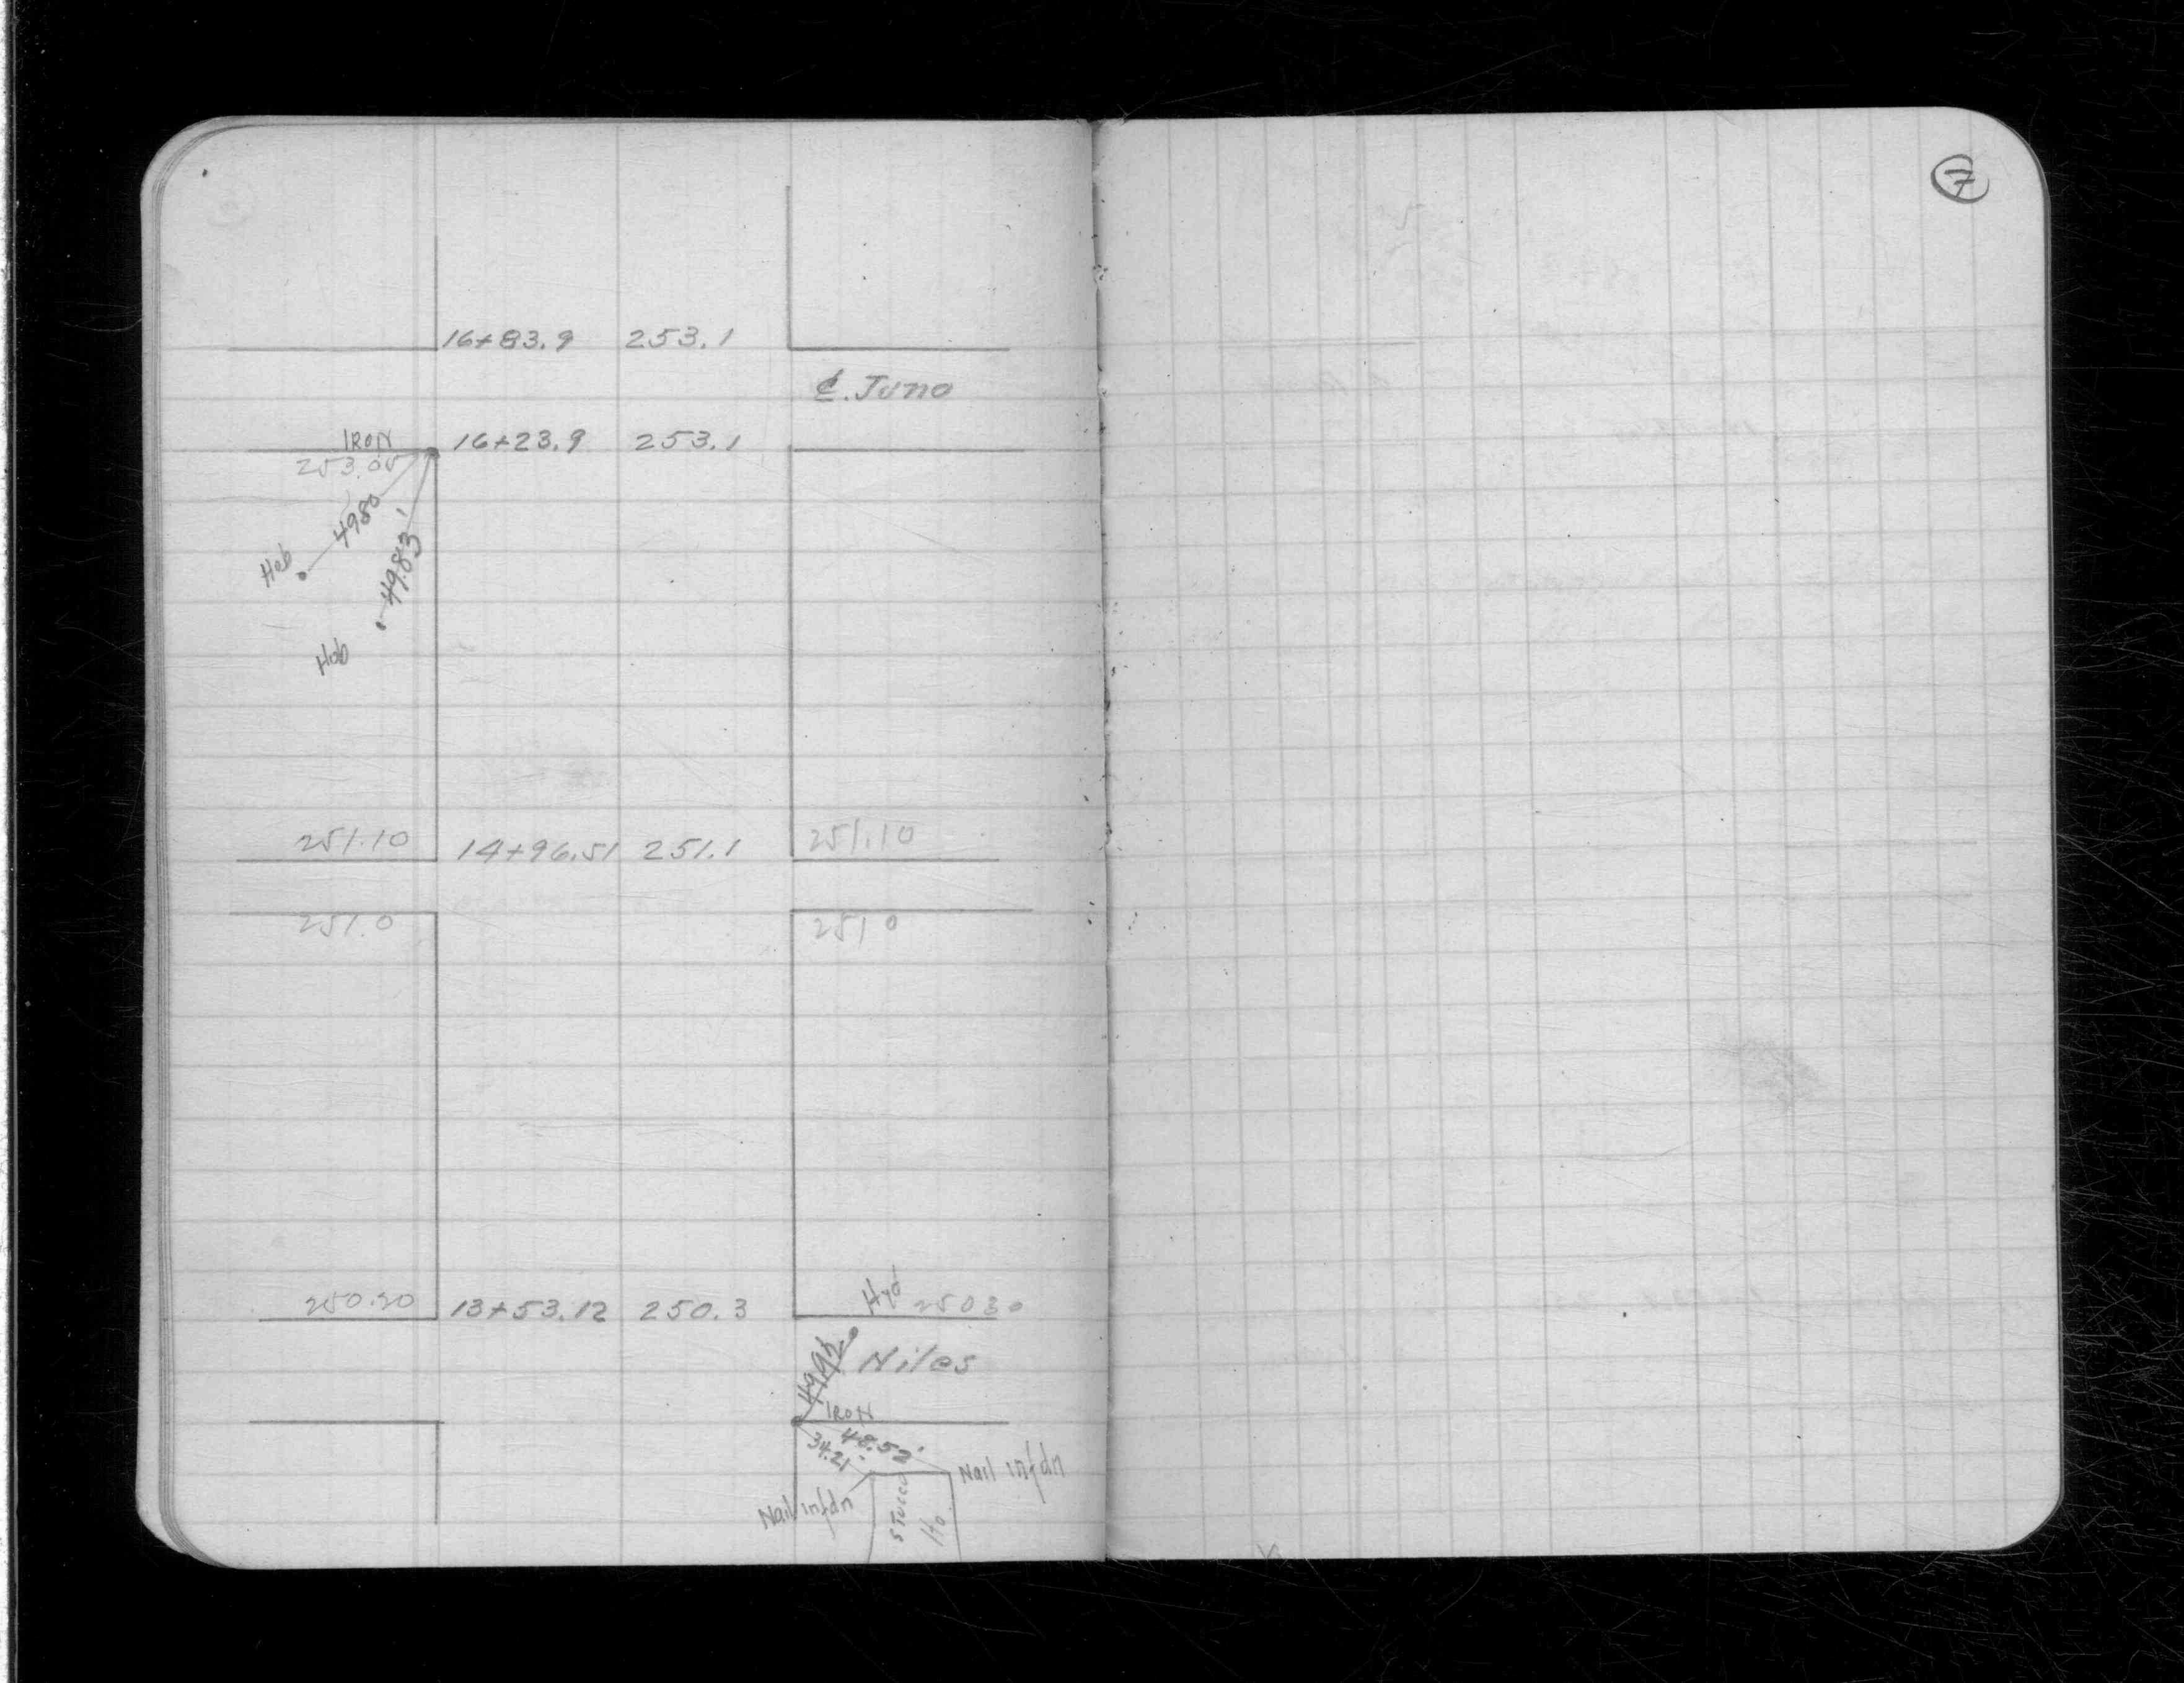 7
16+83.9 253.1
₵. Juno
IRON 16+23.9 253.1
253.05
4980
49.83'
Hub
Hub
251.10 14+96.51 251.1 251.10
251.0 251 0
Hyd
250.20 13+53.12 250.3 250 30
Niles
IRON
48.52'
34.21'
Nail in fdn
Nail in fdn
STUCCO
Ho.